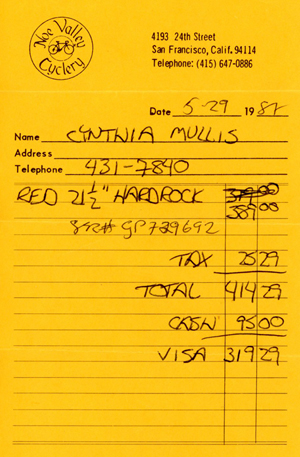 Noe Valley
Cyclery
4193 24th Street
San Francisco, Calif. 94114
Telephone: (415) 647-0886
Date 5-29 1987
Name CYNTHIA MULLIS
Address
Telephone 431-7840
RED 21 1/2" HARDROCK 379 00
389 00
SER# GP729692
TAX 25 29
TOTAL 414 29
CASH 95 00
VISA 319 29